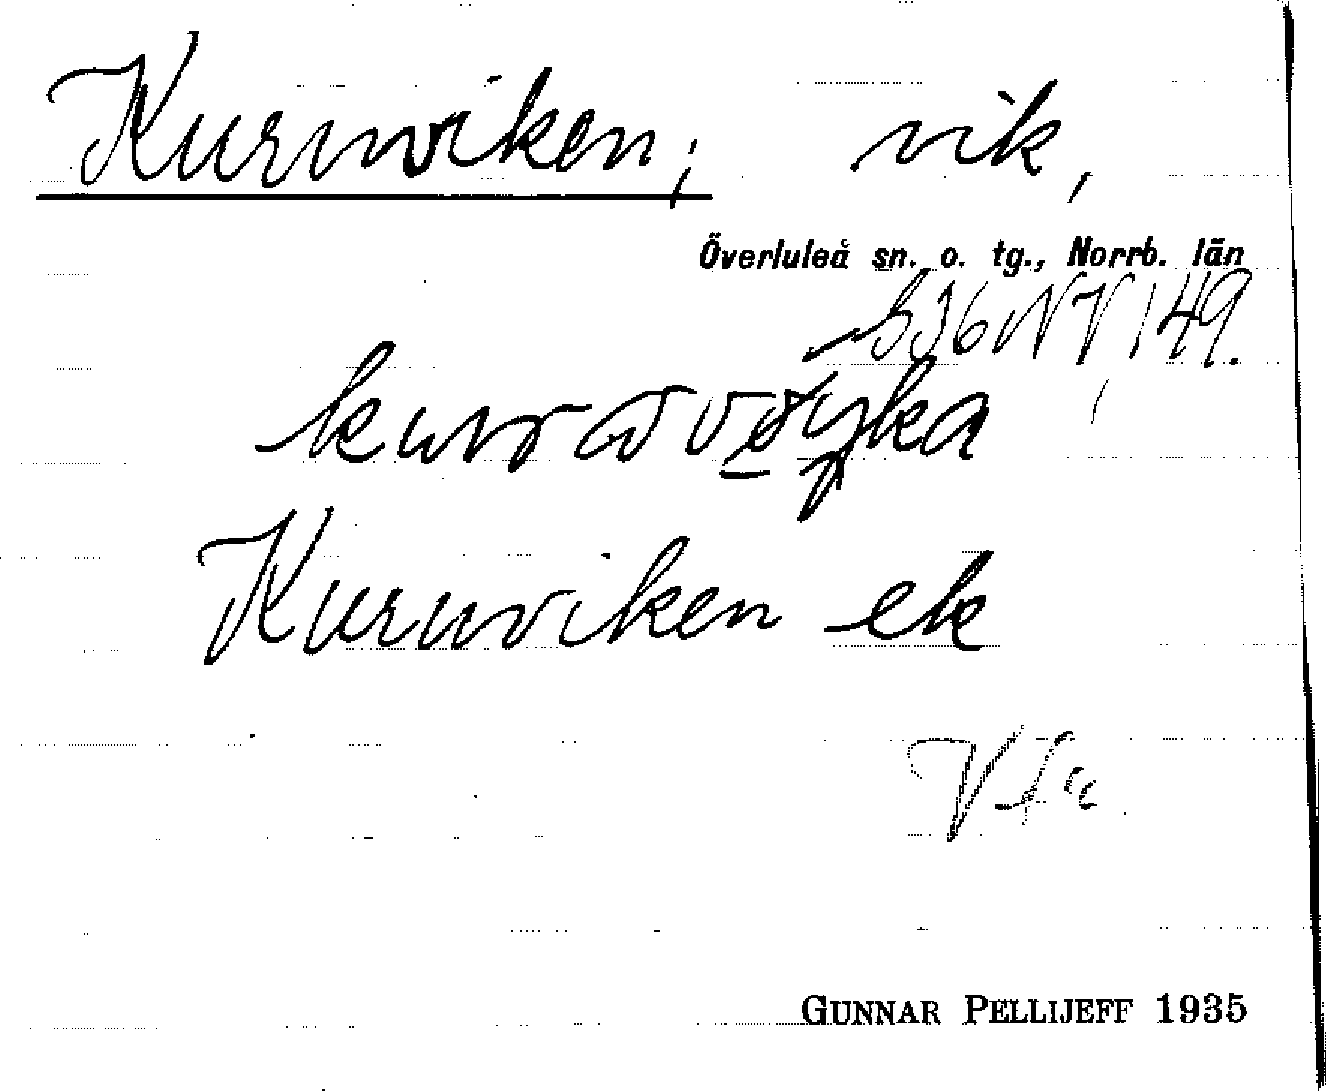 Kuruviken; vik,
Överluleå sn. o. tg., Norrb. län
S36NV, 149.
Kuruviken ek
GUNNAR PELLIJEFF 1935